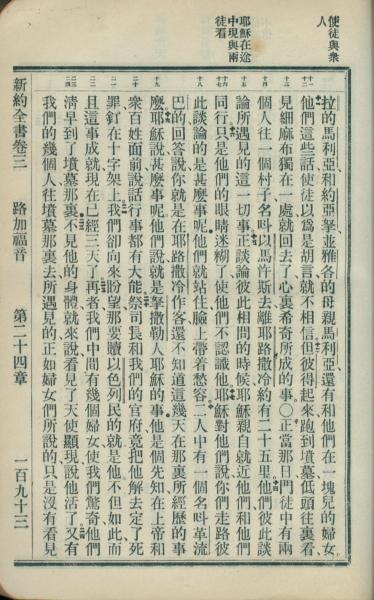 使徒與眾人
耶穌在途中現與兩徒看
十一 十二 十三 十四 十五 十六 十七 十八 十九 二十 二一 二二 二三 二四
拉的馬利亞和約亞拏並雅各的母親馬利亞還有和他們在一塊兒的婦女
他們這些話使徒以爲是胡言就不相信但彼得起來跑到墳墓低頭往裏看
見細麻布獨在一處就回去了心裏希奇所成的事○正當那日門徒中有兩
個人往一個村子名呌以馬忤斯去離耶路撒冷約有二十五里他們彼此談
論所遇見的這一切事正談論彼此相問的時候耶穌親自就近他們和他們
同行只是他們的眼睛迷糊了使他們不認識他耶穌對他們說你們走路彼
此談論的是甚麼事呢他們就站住臉上帶着愁容二人中有一個名呌革流
巴的回答說你就是在耶路撒冷作客還不知道這幾天在那裏所經歷的事
麼耶穌說甚麼事呢他們說就是拏撒勒人耶穌的事他是個先知在上帝和
眾百姓面前說話行事都有大能祭司長和我們的官府竟把他解去定了死
罪釘在十字架上我們卻向來盼望那要贖以色列民的就是他不但如此而
且這事成就現在已經三天了再者我們中間有幾個婦女使我們驚奇他們
清早到了墳墓那裏不見他的身體就來說看見了天使顯現說他活了又有
我們的幾個人往墳墓那裏去所遇見的正如婦女們所說的只是沒有看見
新約全書卷三 路加福音 第二十四章 一百九十三